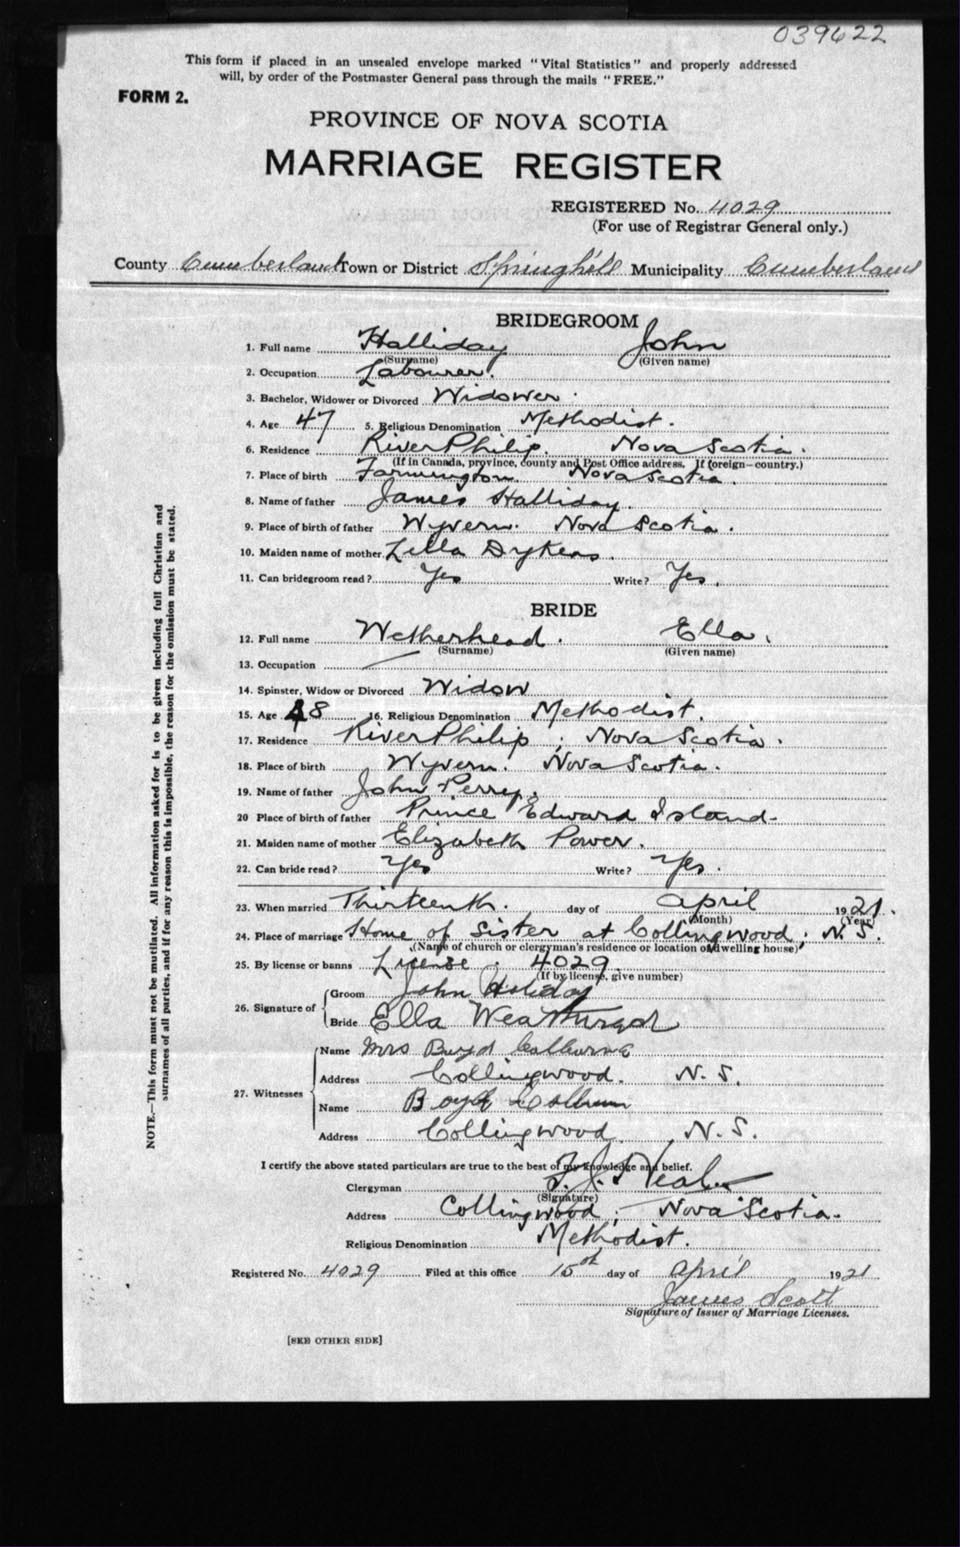 039622
This form if placed in an unsealed envelope marked "Vital Statistics" and properly addressed
will, by order of the Postmaster General pass through the mails "FREE."
FORM 2.
PROVINCE OF NOVA SCOTIA
MARRIAGE REGISTER
REGISTERED No. 4029
(For use of Registrar General only.)
County Cumberland Town or District Springhill Municipality Cumberland
BRIDEGROOM
1. Full name Halliday John
(Surname) (Given name)
2. Occupation Labourer.
3. Bachelor, Widower or Divorced Widower.
4. Age 47 5. Religious Denomination Methodist.
6. Residence River Philip. Nova Scotia.
(If in Canada, province, county and Post Office address. If foreign—country.)
7. Place of birth Farmington. Nova Scotia.
8. Name of father James Halliday.
9. Place of birth of father Wyvern. Nova Scotia.
10. Maiden name of mother Dykens.
11. Can bridegroom read? Yes Write? Yes.
BRIDE
12. Full name Wetherhead. Ella.
(Surname) (Given name)
13. Occupation —
14. Spinster, Widow or Divorced Widow
15. Age 48 16. Religious Denomination Methodist.
17. Residence River Philip; Nova Scotia.
18. Place of birth Wyvern. Nova Scotia.
19. Name of father John Perry.
20 Place of birth of father Prince Edward Island.
21. Maiden name of mother Elizabeth Power.
22. Can bride read? Yes Write? Yes.
23. When married Thirteenth. day of April 1921.
(Month) (Year)
24. Place of marriage Home of Sister at Collingwood; N.S.
(Name of church or clergyman's residence or location of dwelling house)
25. By license or banns License. 4029.
(If by license, give number)
26. Signature of
Groom John Holiday
Bride Ella
27. Witnesses
Name Mrs Boyd
Address Collingwood. N.S.
Name
Address Collingwood. N.S.
I certify the above stated particulars are true to the best of my knowledge and belief.
Clergyman
(Signature)
Address Collingwood; Nova Scotia.
Religious Denomination Methodist.
Registered No. 4029 Filed at this office 15th day of April 1921
James Scott
Signature of Issuer of Marriage Licenses.
[SEE OTHER SIDE]
NOTE.—This form must not be mutilated. All information asked for is to be given including full Christian and
surnames of all parties, and if for any reason this is impossible, the reason for the omission must be stated.